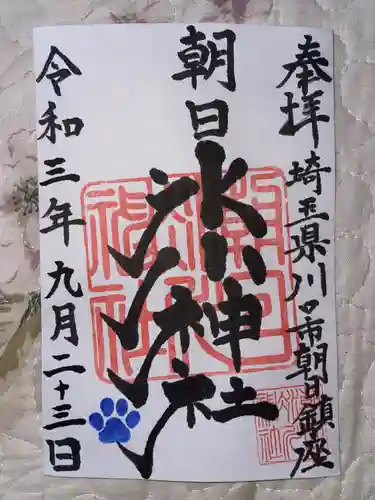 奉拝 埼玉県川口市朝日鎮座
朝日氷川神社
令和三年九月二十三日